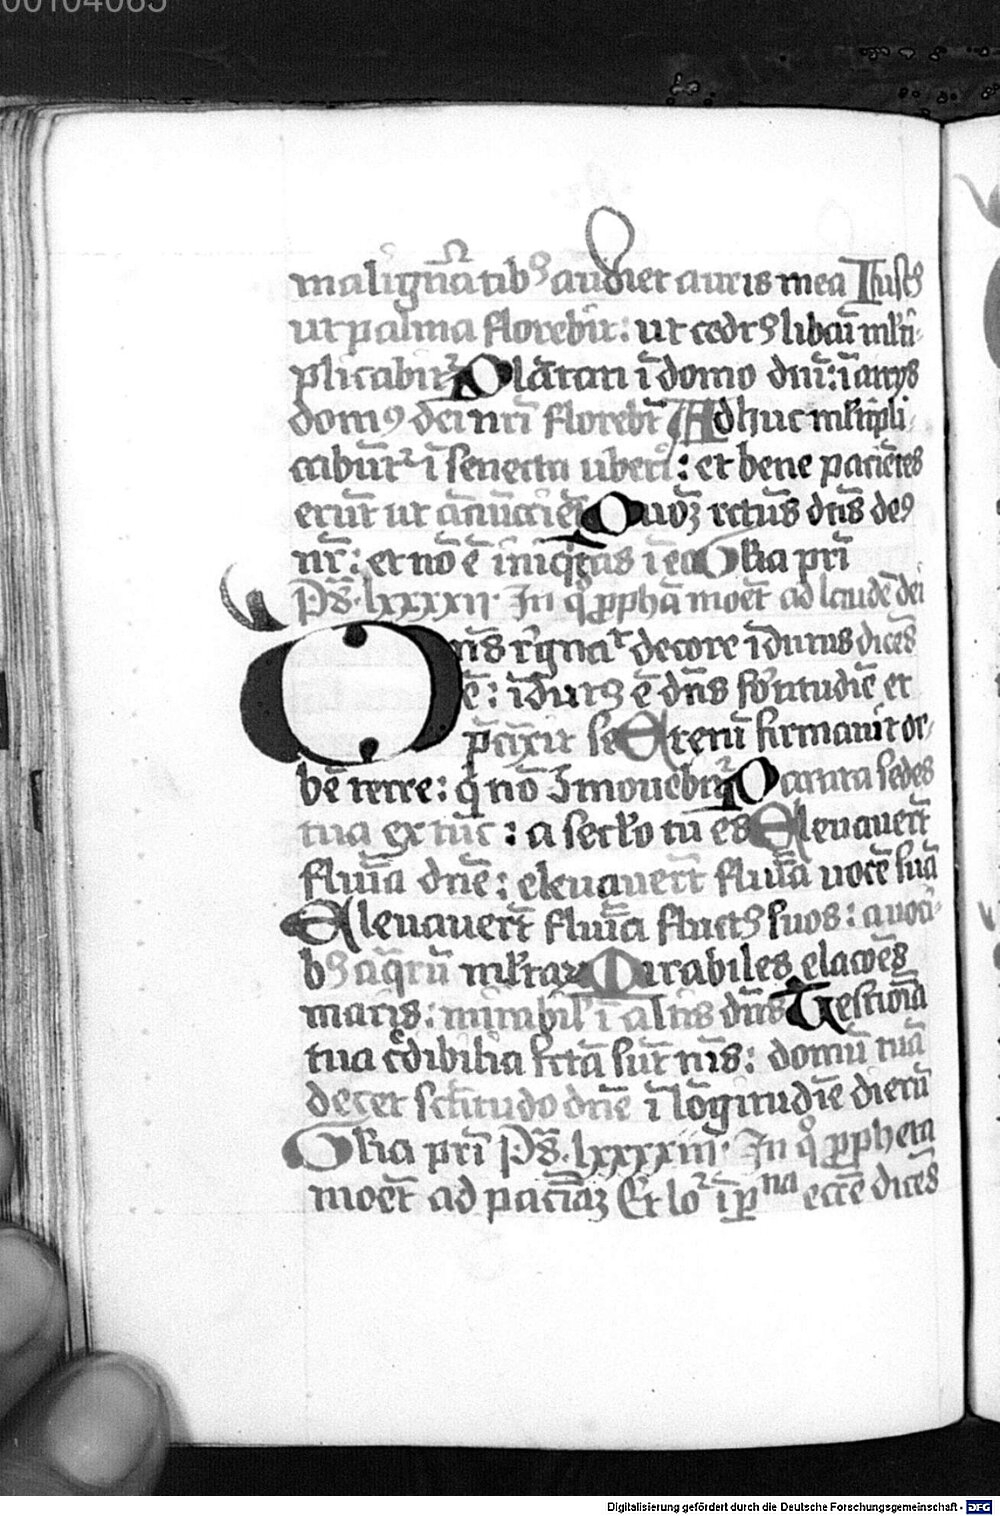 00104065
malignātibꝰ audiet auris mea Iustꝰ
ut palma florebit: ut cedrꝰ libani mlti-
plicabit᷑ Plātati ī domo dn̄i: ī atrijs
domꝰ dei nr̄i florebūt Adhuc mltipli-
cabūt᷑ ī senecta uberi: et bene paciētes
erūt ut ānūcciēt Quoꝫ rctus dn̄s deꝰ
nr̄: et nō ē īniqtas ī eo Glia pr̄i
Ps̄. lxxxxii. In qͦ ꝓpphā moet̄ ad laudē dei
Dn̄s rignat᷑ decore īdutus dicēs
ē: īdutꝰ ē dn̄s fortitudīe et
p̄cīxit se Eteni firmauit or-
bē terre: q̇ nō ꝯmouebit᷑ Parata sedes
tua ex tūc: a seclo tu es Eleuauert̄
flumīa dn̄e: eleuauert̄ flumīa uocē suā
Eleuauert̄ flumīa fluctꝰ suos: a uoci-
bꝰ aqrū mltaꝝ Mirabiles elacōes
maris: mirabilˀ ī altis dn̄s Testiōia
tua cͬdibilia fcta sūt nis: domū tuā
decet sctitudo dn̄e ī lōgitudīe dierū
Glia pr̄i Ps̄. lxxxxiii. In qͦ ꝓppheta
moet̄ ad paciaꝫ Et lo᷑ ī ꝑna eccē dicēs
Digitalisierung gefördert durch die Deutsche Forschungsgemeinschaft - DFG